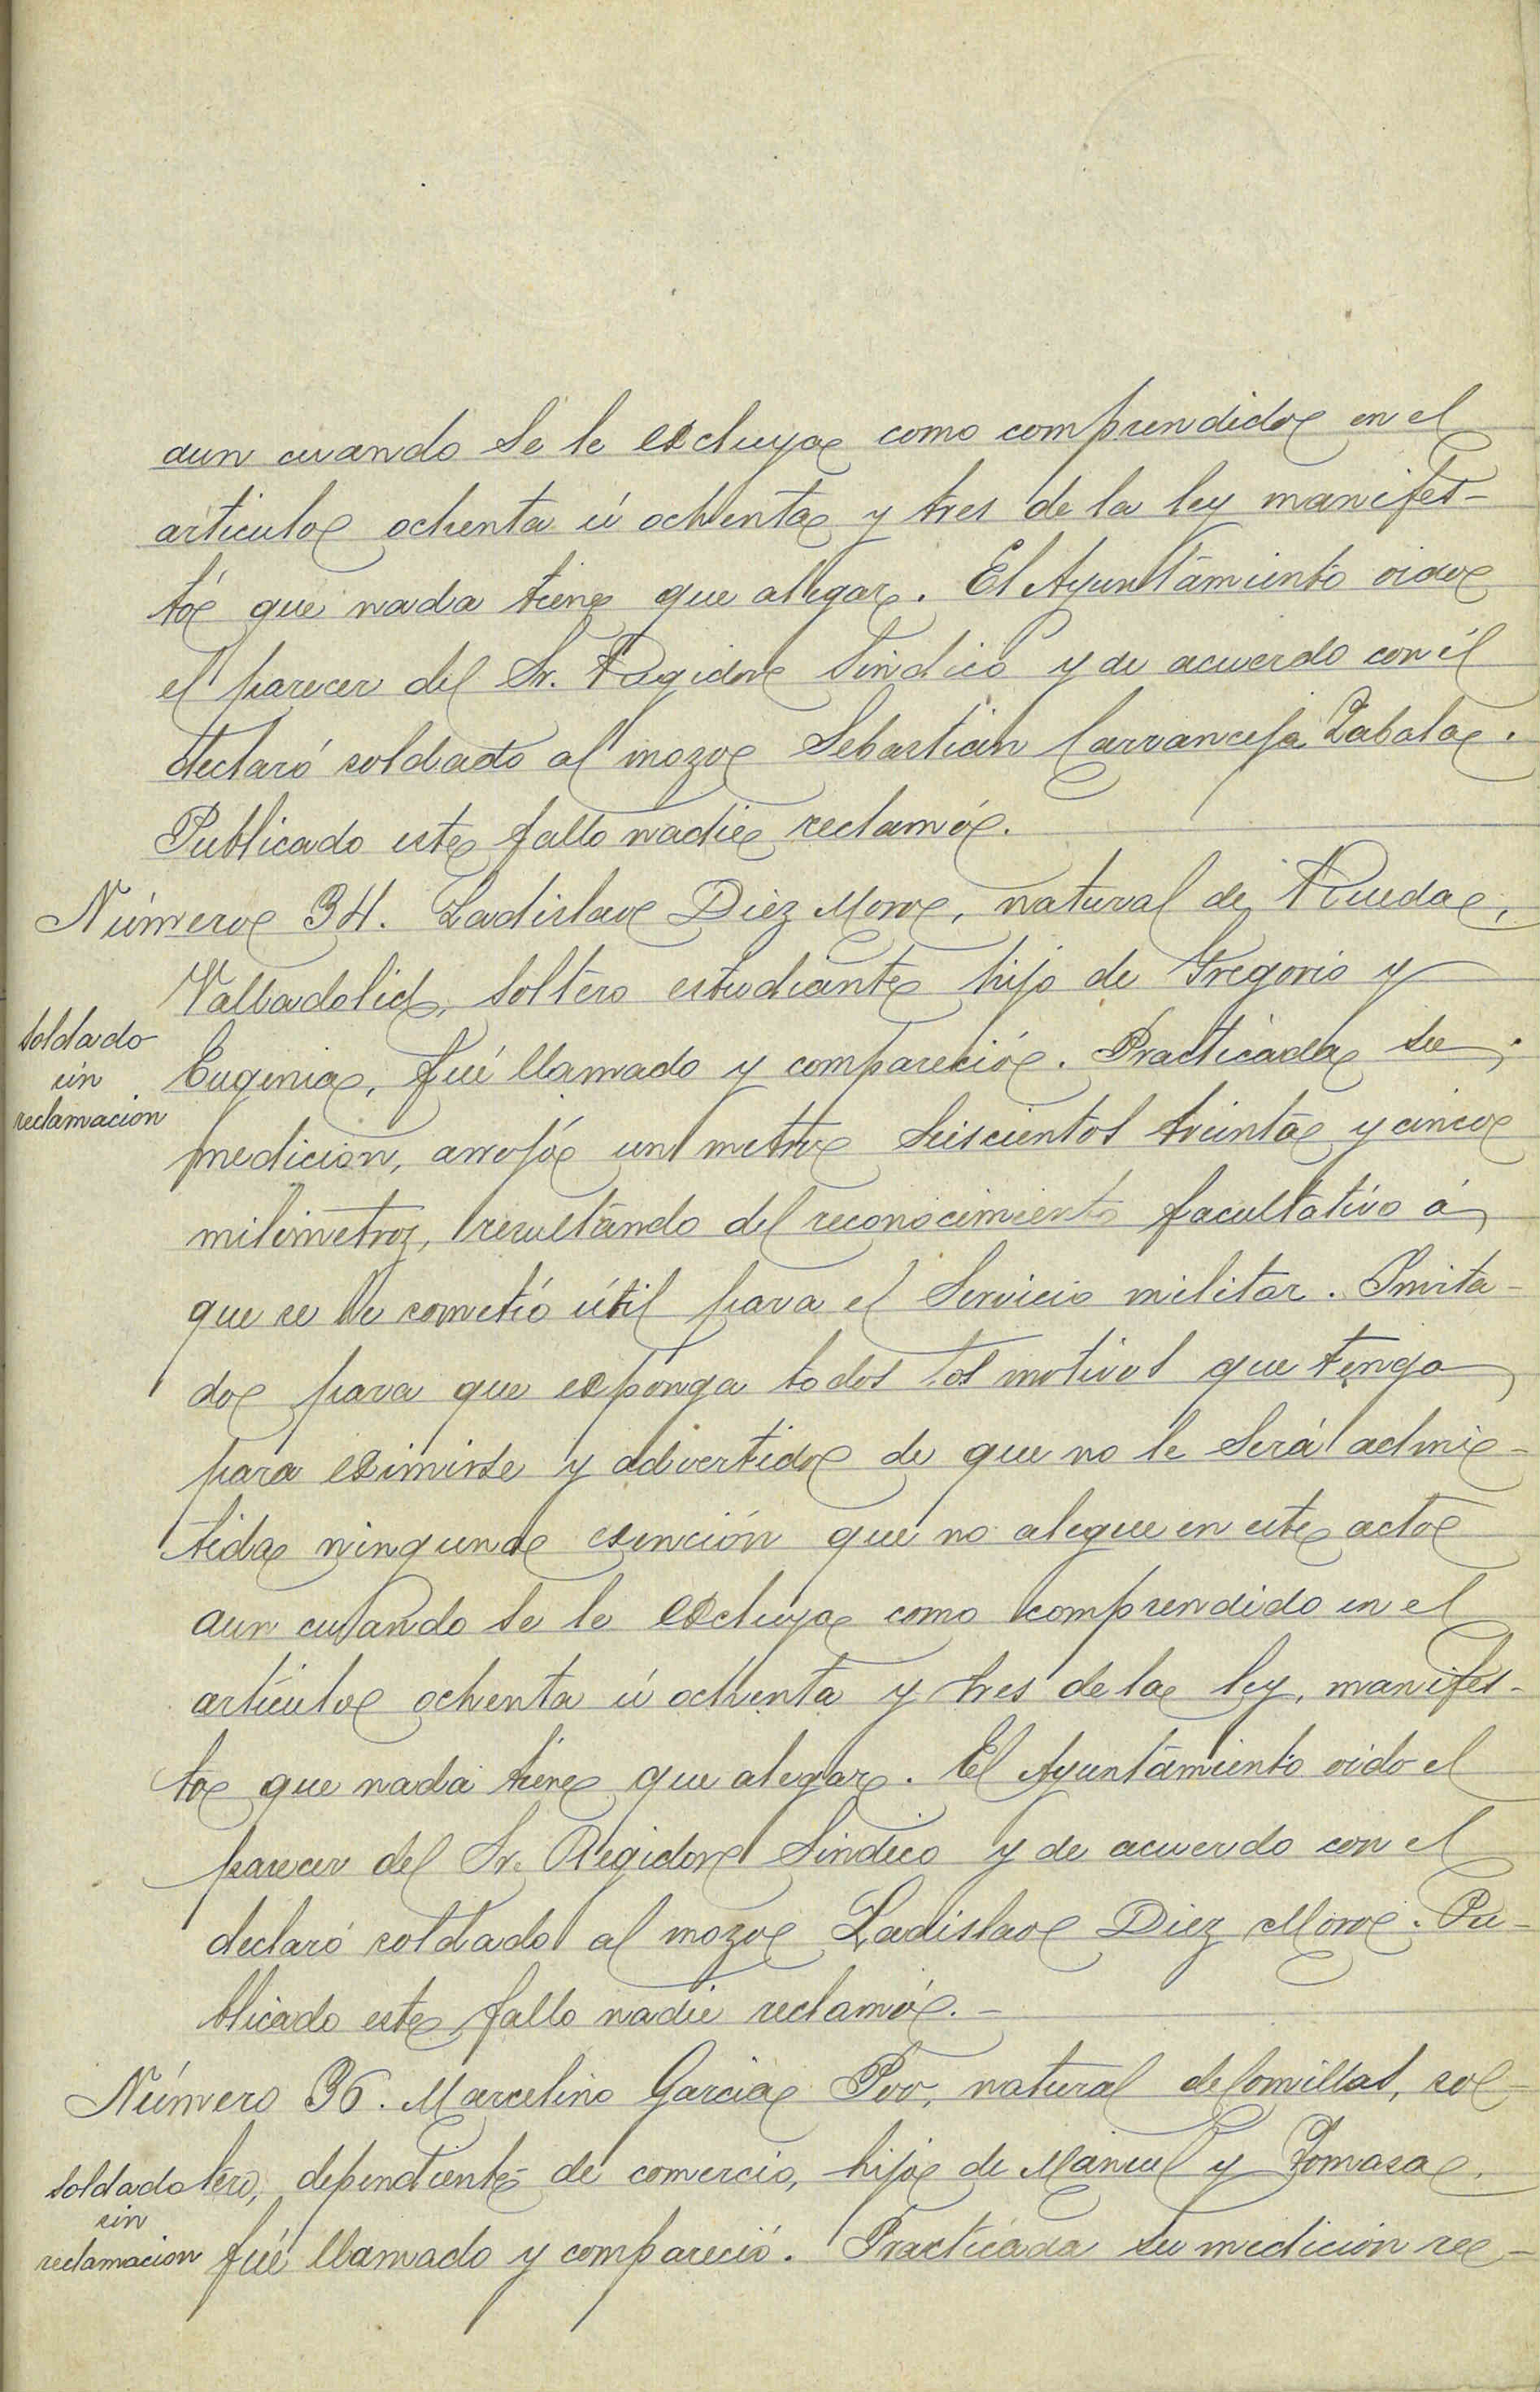 aun cuando se le excluya como comprendido en el
articulo ochenta ú ochenta y tres de la ley manifes-
tó que nada tiene que alegar. El Ayuntamiento oido
el parecer del Sr. Regidor Sindico y de acuerdo con él
declaró soldado al mozo Sebastián Carranceja Zabala.
Publicado este fallo nadie reclamó.
Número 34. Ladislao Diez Moro, natural de Rueda,
Valladolid, soltero estudiante hijo de Gregorio y
soldado
sin
reclamacion
Eugenia, fué llamado y compareció. Practicada su
medicion, arrojó un metro seiscientos treinta y cinco
milimetros, resultando del reconocimiento facultativo á
que se le sometió útil para el servicio militar. Invita-
do para que exponga todos los motivos que tenga
para eximirse y advertido de que no le será admi-
tida ninguna exención que no alegue en este acto
aun cuando se le excluya como comprendido en el
artículo ochenta ú ochenta y tres de la ley, manifes-
to que nada tiene que alegar. El Ayuntamiento oido el
parecer del Sr. Regidor Sindico y de acuerdo con el
declaró soldado al mozo Ladislao Diez Moro. Pu-
blicado este fallo nadie reclamó.-
Número 36. Marcelino Garcia Poo, natural de Comillas, sol-
soldado
sin
reclamacion
tero, dependiente de comercio, hijo de Manuel y Tomasa,
fué llamado y compareció. Practicada su medicion re-